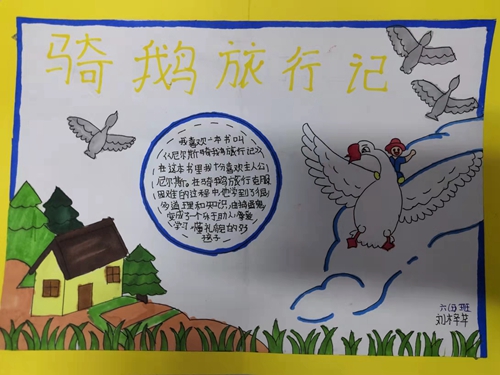 骑鹅旅行记
我喜欢一本书叫
《尼尔斯骑鹅旅行记》
在这本书里我十份喜欢主人公
尼尔斯,在骑鹅旅行克服
困难的过程中也学到了很
多道理和知识,
变成了一个乐于助人
学习懂礼貌的好
孩子
班
刘梓